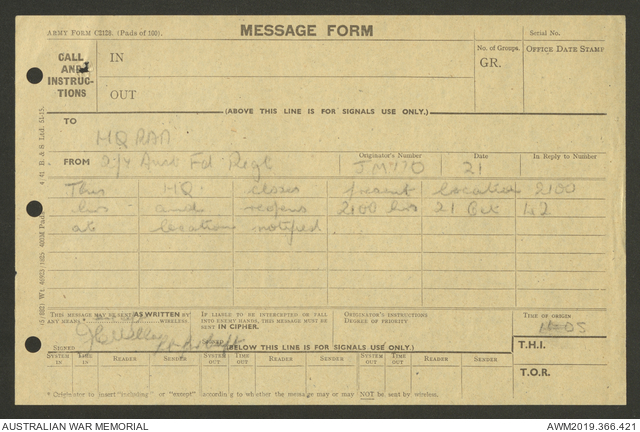 ARMY FORM C2128. (Pads of 100).
MESSAGE FORM
Serial No.
CALL AND INSTRUCTIONS
IN
OUT
No. of Groups.
GR.
OFFICE DATE STAMP
(ABOVE THIS LINE IS FOR SIGNALS USE ONLY.)
TO
HQ RAA
FROM
Aust Fd Regt
Originator's Number
Date
21
In Reply to Number
This HQ closes present location 2100
hrs and reopens 2100 hrs 21 Oct 42
at location notified
THIS MESSAGE MAY BE SENT AS WRITTEN BY ANY MEANS.
WIRELESS
IF LIABLE TO BE INTERCEPTED OR FALL INTO ENEMY HANDS, THIS MESSAGE MUST BE SENT IN CIPHER.
ORIGINATOR'S INSTRUCTIONS
DEGREE OF PRIORITY
TIME OF ORIGIN
SIGNED
Capt
(BELOW THIS LINE IS FOR SIGNALS USE ONLY.)
T.H.I.
SYSTEM IN
TIME IN
READER
SENDER
SYSTEM OUT
TIME OUT
READER
SENDER
SYSTEM OUT
TIME OUT
READER
SENDER
T.O.R.
* Originator to insert "including" or "except" according to whether the message may or may NOT be sent by wireless.
AUSTRALIAN WAR MEMORIAL
AWM2019.366.421